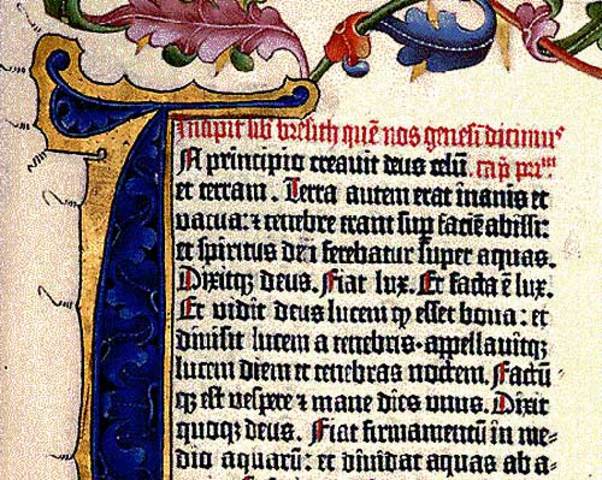 Incipit lib̄ bresith quē nos genesī dicim⁹
In principio creauit deus celū. cap̄ prīm
et terram. Terra autem erat inanis et
vacua: ⁊ tenebre erant suꝑ faciē abissi:
et spiritus dn̄i ferebatur super aquas.
Dixitqꝫ deus. Fiat lux. Et facta ē lux.
Et vidit deus lucem ꝙ esset bona: et
diuisit lucem a tenebris·appellauitqꝫ
lucem diem et tenebras noctem. Factū
qꝫ est vespere ⁊ mane dies vnus. Dixit
quoqꝫ deus. Fiat firmamentū in me⸗
dio aquarū: et diuidat aquas ab a⸗